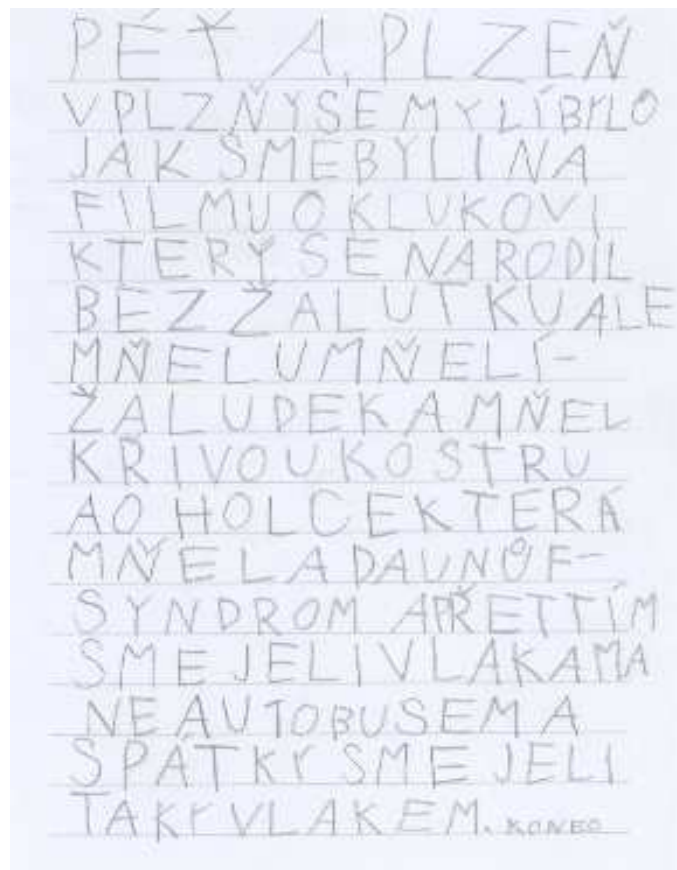 PÉŤA, PLZEŇ
V PLZŇY SE MY LÍBYLO
JAK SME BYLI NA
FILMU O KLUKOVI
KTERÝ SE NARODIL
BEZ ŽALUTKU ALE
MŇEL UMŇELÍ-
ŽALUDEK A MŇEL
KRIVOU KOSTRU
A O HOLCE KTERÁ
MŇELA DAUNŮF-
SYNDROM A PŘETTÍM
SME JELI VLAKAMA
NE AUTOBUSEM A
SPÁTKY SME JELI
TAKY VLAKEM. KONEC